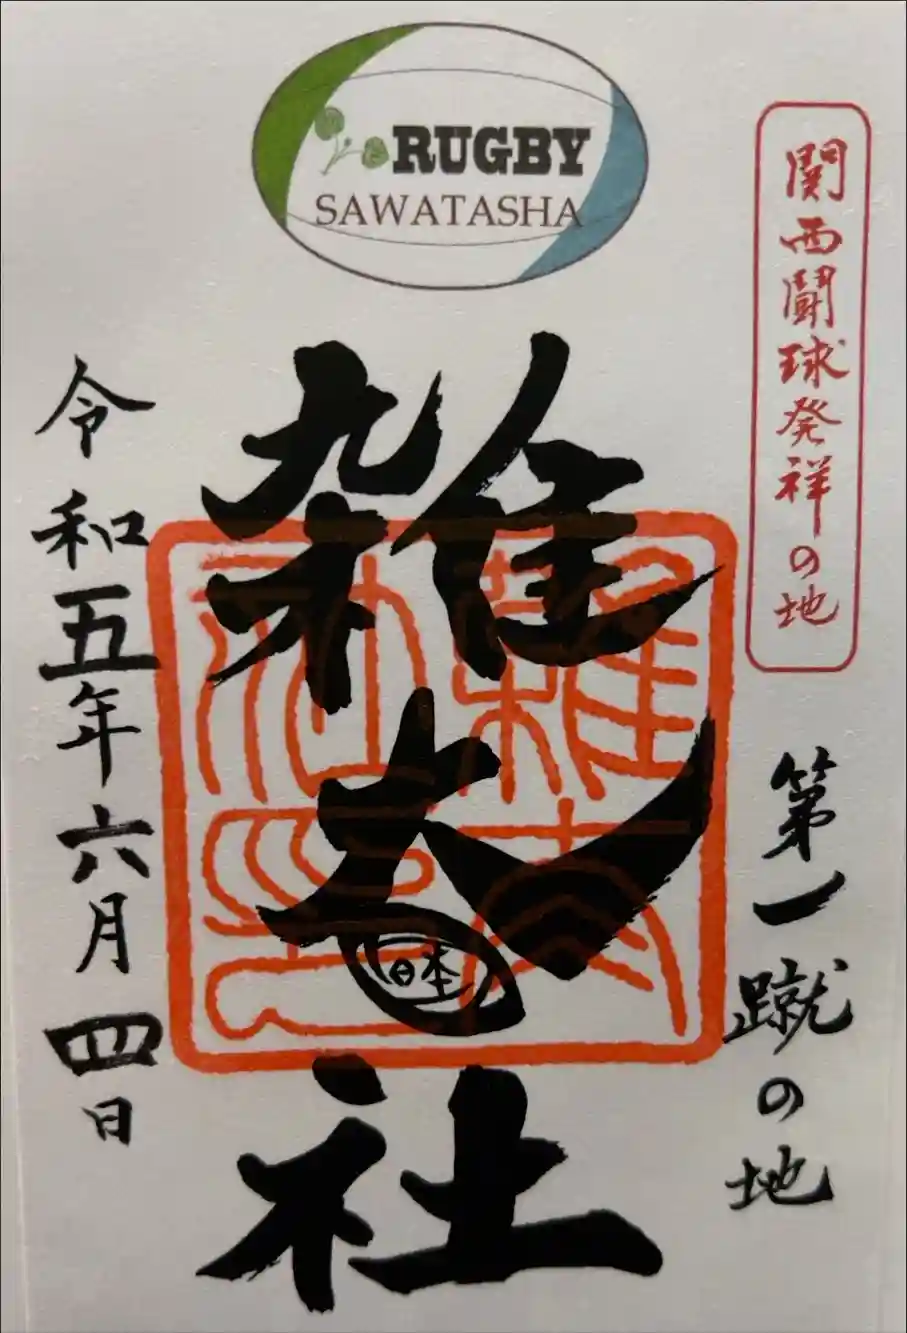 RUGBY
SAWATASHA
関西闘球発祥の地
第一蹴の地
雑太社
日本
令和五年六月四日